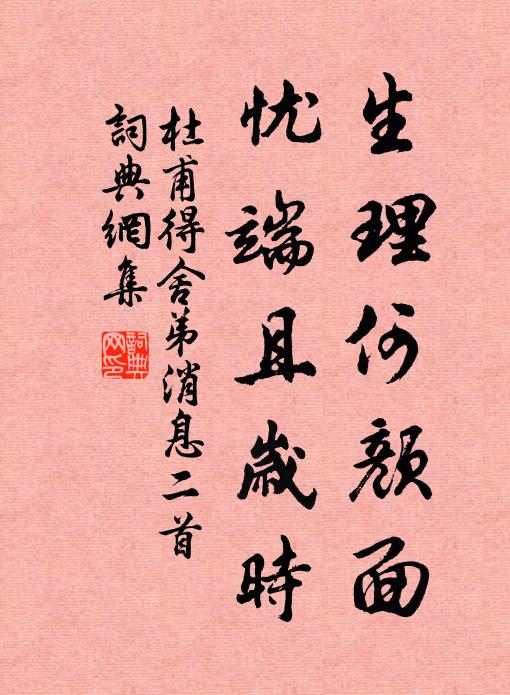 生理何顔面
忧端且歲時
杜甫得舍弟消息二首
詞典網集
詞典网印